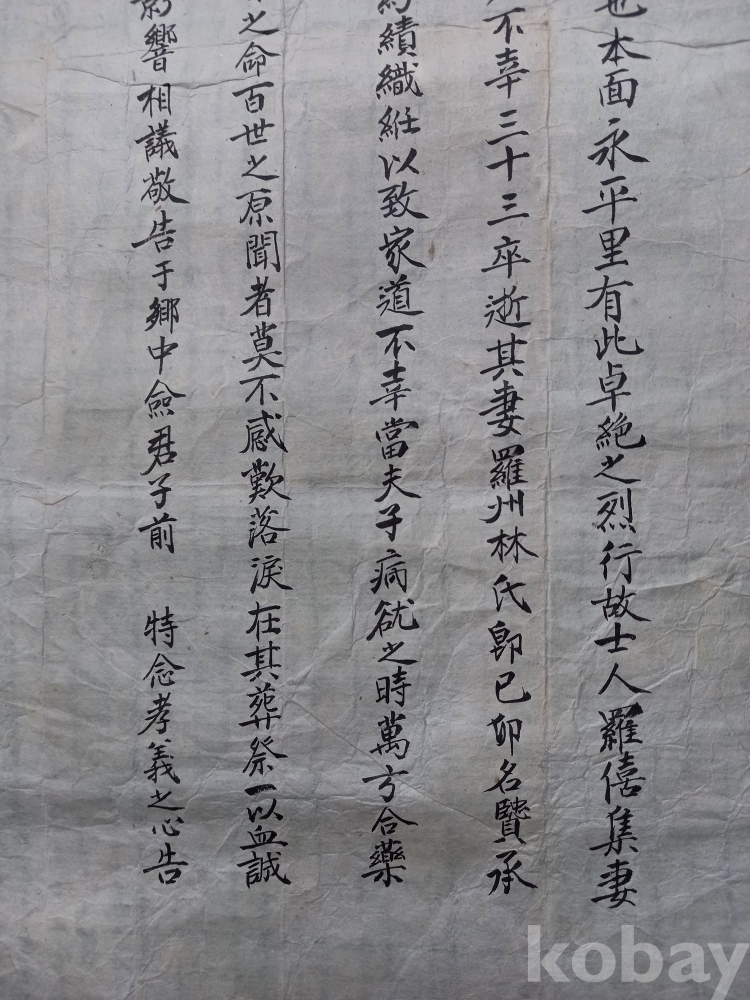 也本面永平里有此卓絶之烈行故士人羅僖集妻
不幸三十三卒逝其妻羅州林氏卽己卯名賢承
績織絍以致家道不幸當夫子病之時萬方合藥
之命百世之原聞者莫不感歎落淚在其葬祭一以血誠
響相議敬告于鄉中僉君子前 特念孝義之心告
kobay